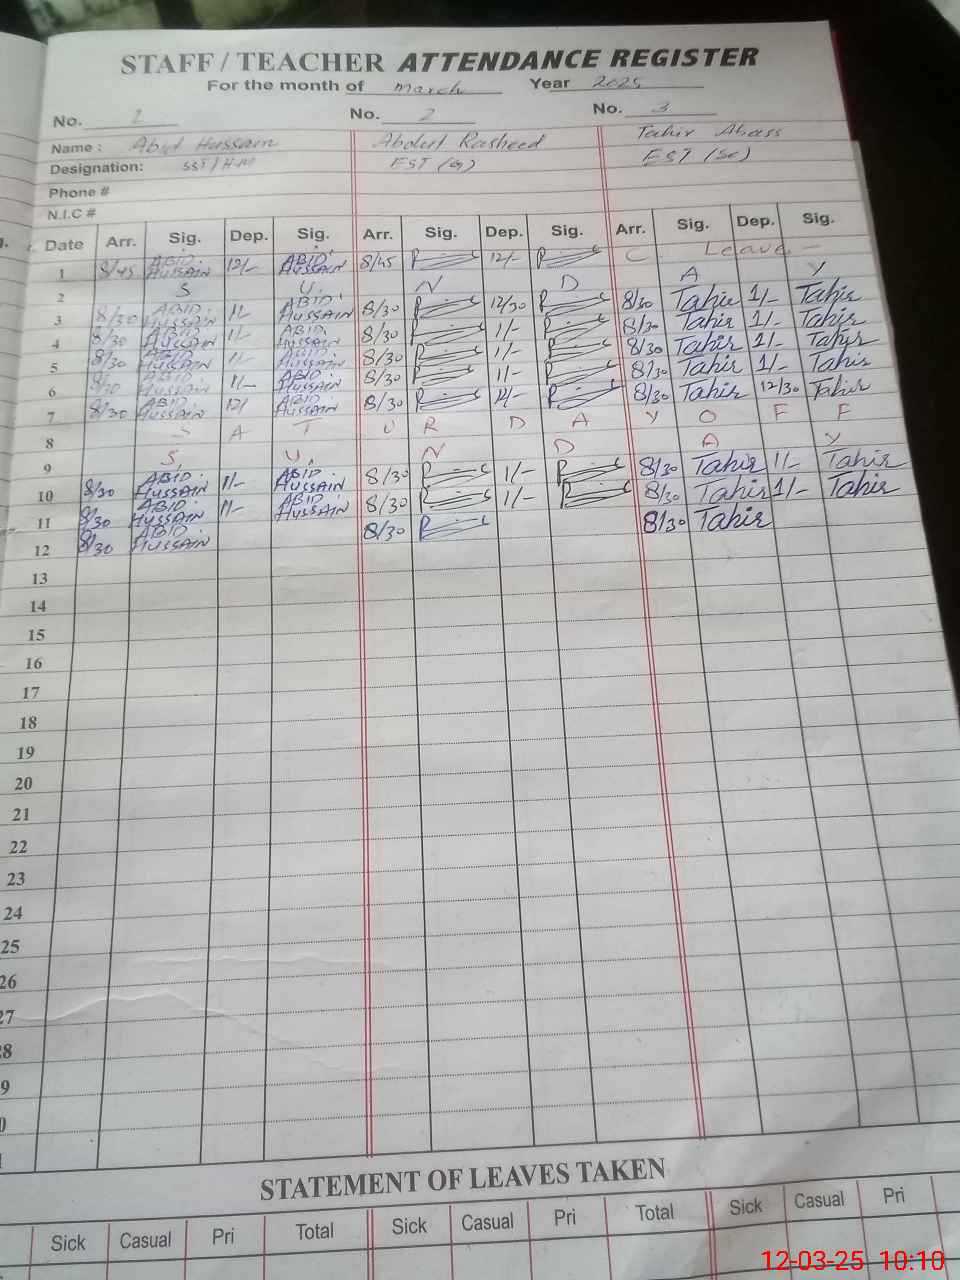 STAFF / TEACHER ATTENDANCE REGISTER
For the month of March Year 2025
No. 1 No. 2 No. 3
Name : Abid Hussain Abdul Rasheed Tahir Abass
Designation: SST/H.M EST (G) EST (Sc)
Phone #
N.I.C #
Date Arr. Sig. Dep. Sig. Arr. Sig. Dep. Sig. Arr. Sig. Dep. Sig.
1 8/45 ABID HUSSAIN 12/- ABID HUSSAIN 8/45 12/- C Leave -
2 S U N D A Y
3 8/30 ABID HUSSAIN 1/- ABID HUSSAIN 8/30 12/30 8/30 Tahir 1/- Tahir
4 8/30 ABID HUSSAIN 1/- ABID HUSSAIN 8/30 1/- 8/30 Tahir 1/- Tahir
5 8/30 ABID HUSSAIN 1/- ABID HUSSAIN 8/30 1/- 8/30 Tahir 1/- Tahir
6 8/30 ABID HUSSAIN 1/- ABID HUSSAIN 8/30 1/- 8/30 Tahir 1/- Tahir
7 8/30 ABID HUSSAIN 12/ ABID HUSSAIN 8/30 12/- 8/30 Tahir 12/30 Tahir
8 S A T U R D A Y O F F
9 S U N D A Y
10 8/30 ABID HUSSAIN 1/- ABID HUSSAIN 8/30 1/- 8/30 Tahir 1/- Tahir
11 8/30 ABID HUSSAIN 1/- ABID HUSSAIN 8/30 1/- 8/30 Tahir 1/- Tahir
12 8/30 ABID HUSSAIN 8/30 8/30 Tahir
13
14
15
16
17
18
19
20
21
22
23
24
25
26
27
8
9
0
STATEMENT OF LEAVES TAKEN
Sick Casual Pri Total Sick Casual Pri Total Sick Casual Pri
12-03-25 10:10